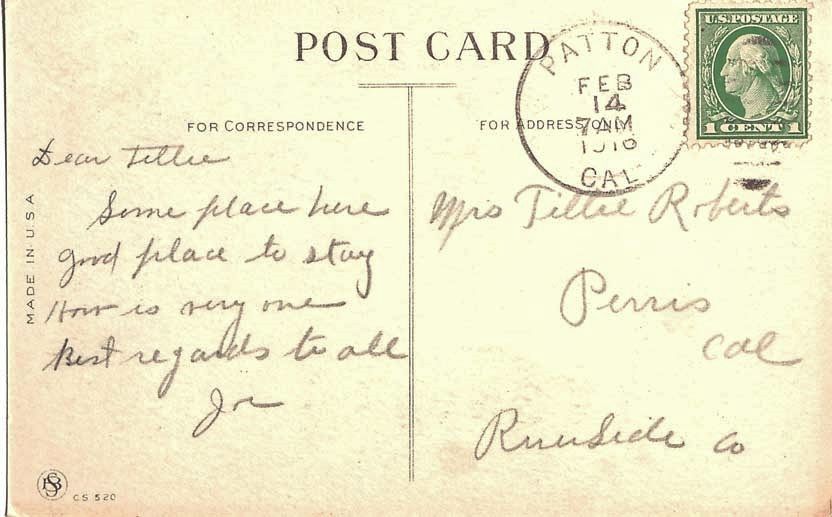 POST CARD
PATTON
FEB
14
7 AM
1916
CAL
U.S. POSTAGE
1 CENT 1
FOR CORRESPONDENCE
FOR ADDRESS ONLY
MADE IN U S A
Dear Tillie
Some place here
good place to stay
How is very one
Best regards to all
Mrs Tillie Roberts
Perris
Cal
Riverside Co
CS 520